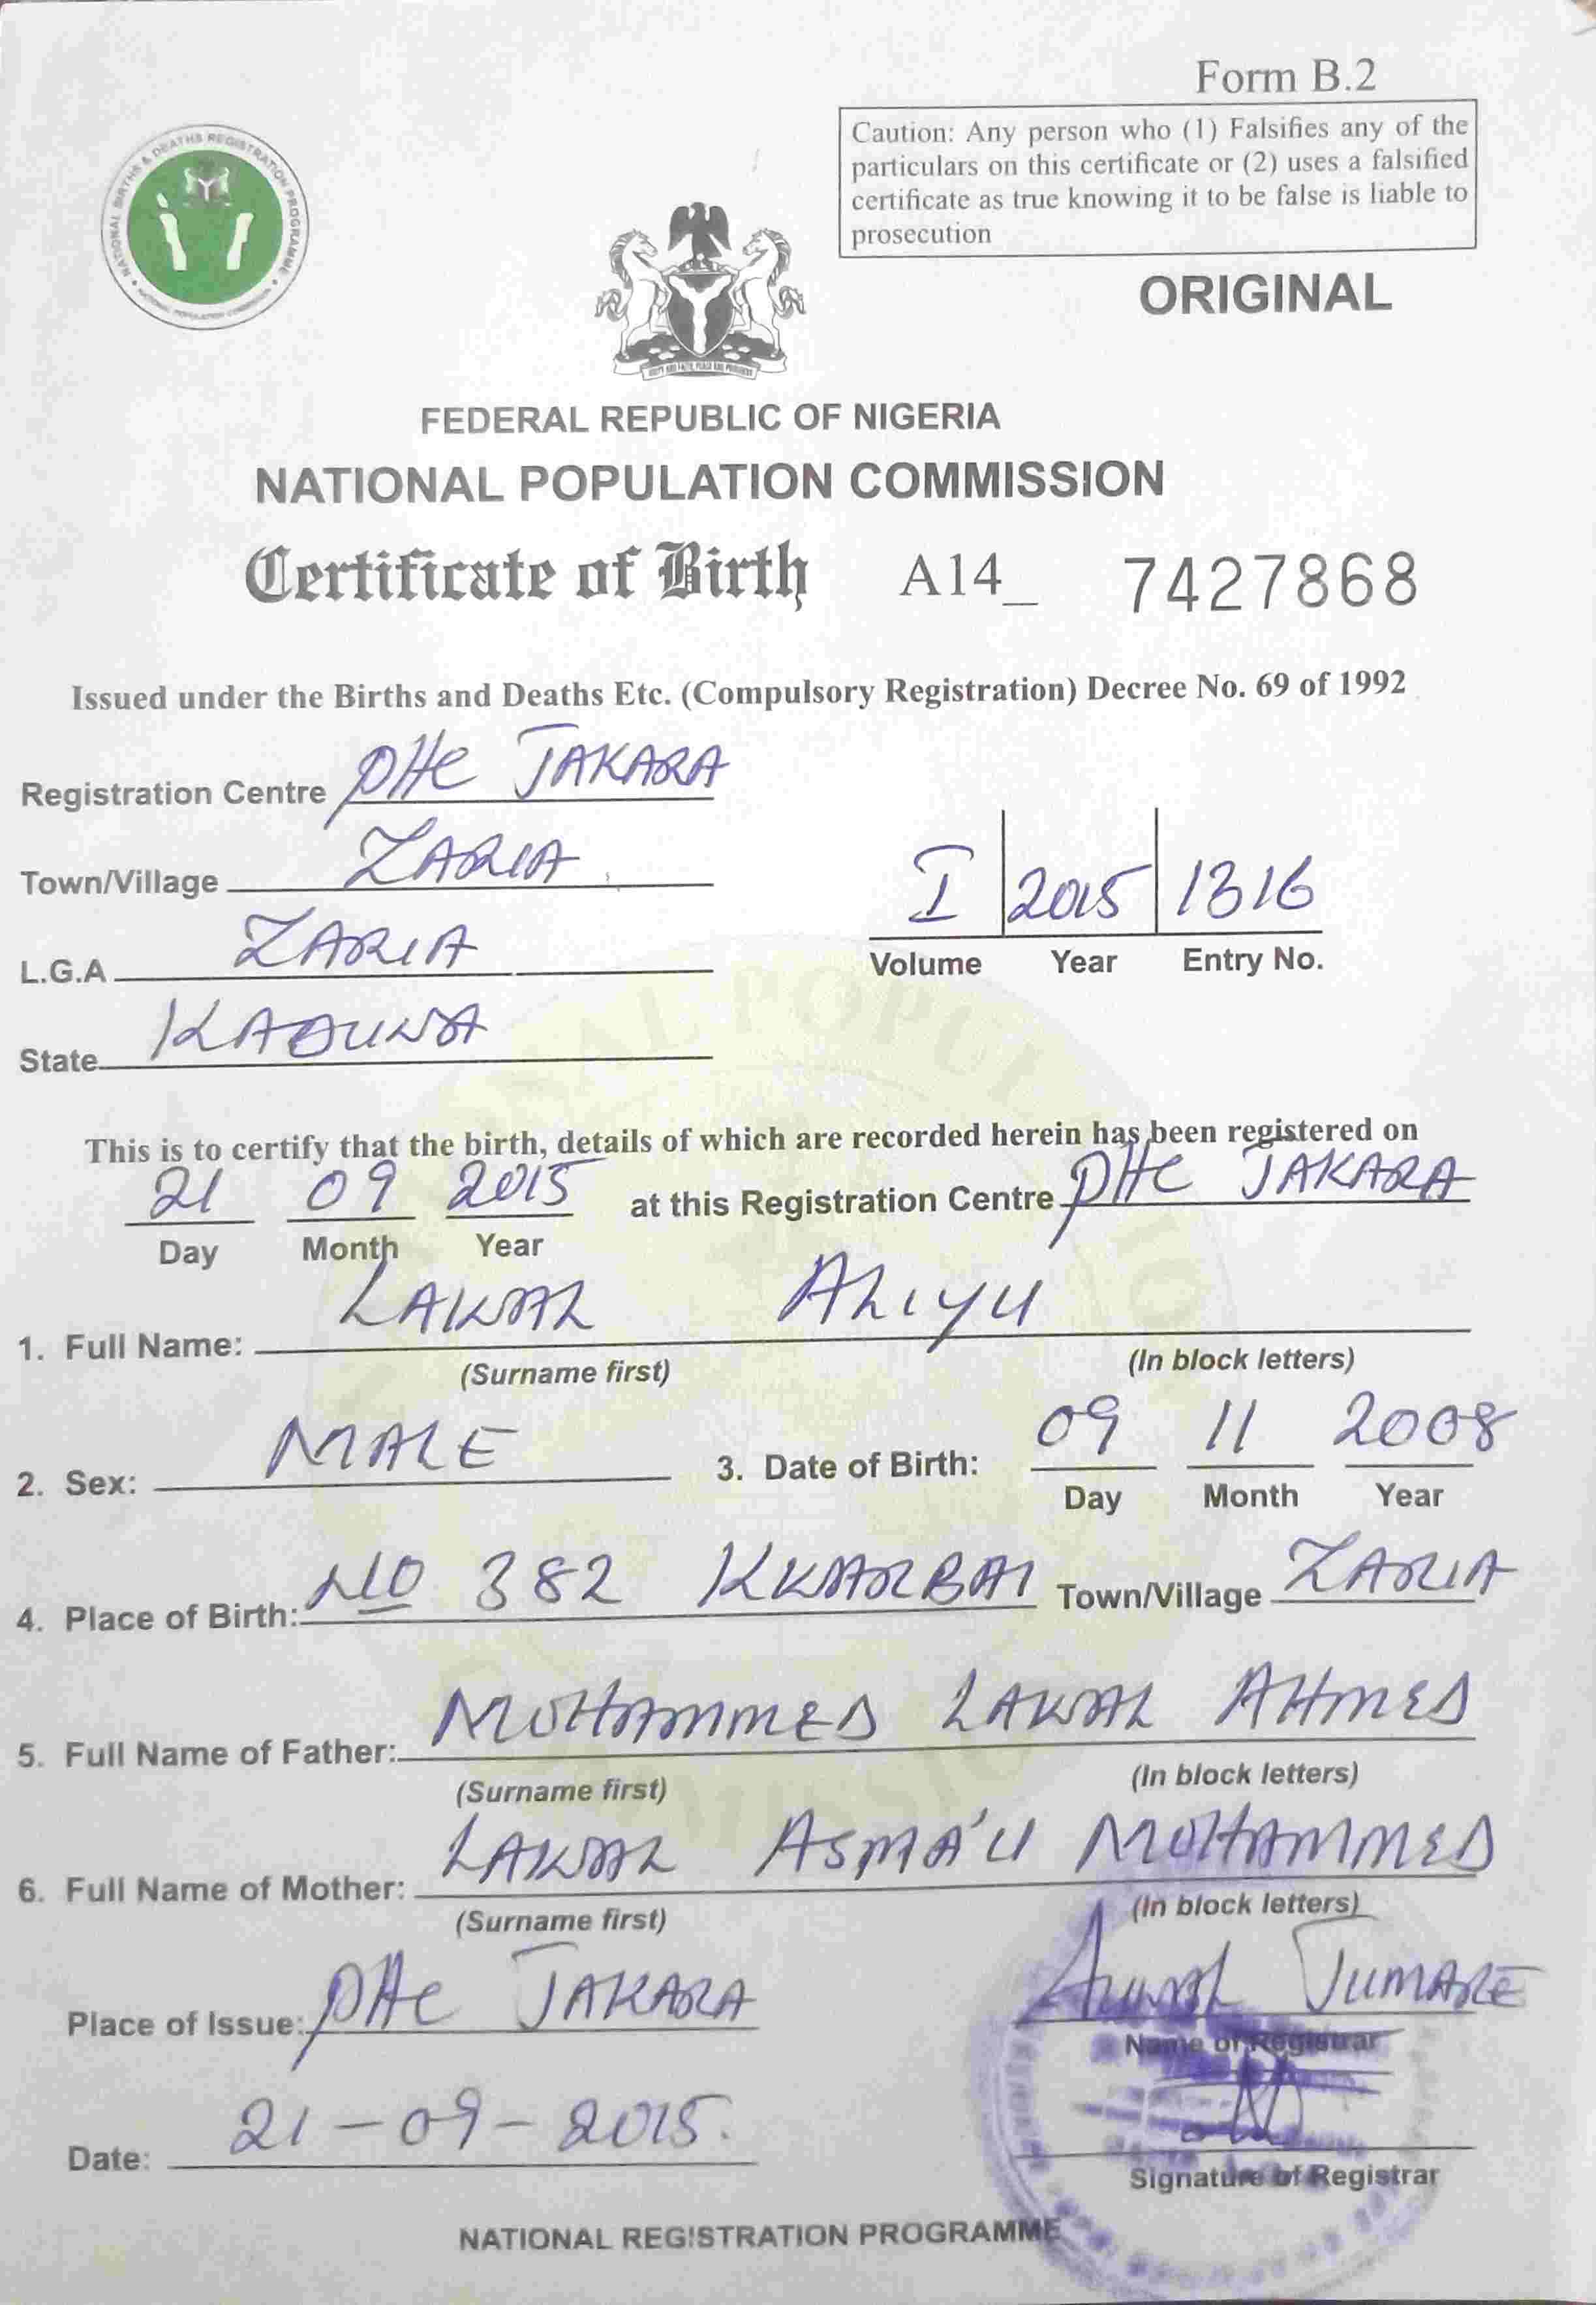 Form B.2
Caution: Any person who (1) Falsifies any of the
particulars on this certificate or (2) uses a falsified
certificate as true knowing it to be false is liable to
prosecution
NATIONAL BIRTHS & DEATHS REGISTRATION PROGRAMME
NATIONAL POPULATION COMMISSION
ORIGINAL
FEDERAL REPUBLIC OF NIGERIA
NATIONAL POPULATION COMMISSION
Certificate of Birth A14_ 7427868
Issued under the Births and Deaths Etc. (Compulsory Registration) Decree No. 69 of 1992
Registration Centre PHC JAKARA
Town/Village ZARIA
L.G.A ZARIA
State KADUNA
I 2015 1316
Volume Year Entry No.
This is to certify that the birth, details of which are recorded herein has been registered on
21 09 2015 at this Registration Centre PHC JAKARA
Day Month Year
1. Full Name: LAWAL ALIYU
(Surname first) (In block letters)
2. Sex: MALE 3. Date of Birth: 09 11 2008
Day Month Year
4. Place of Birth: NO 382 KKWARBAI Town/Village ZARIA
5. Full Name of Father: MOHAMMED LAWAL AHMED
(Surname first) (In block letters)
6. Full Name of Mother: LAWAL ASMA'U MOHAMMED
(Surname first) (In block letters)
Place of Issue: PHC JAKARA
JUMARE
Name of Registrar
Date: 21-09-2015.
Signature of Registrar
NATIONAL REGISTRATION PROGRAMME